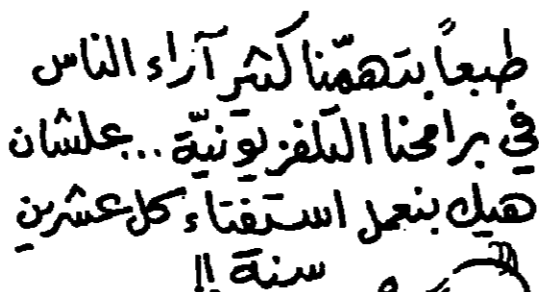 طبعاً بتهمّنا كثير آراء الناس
في برامجنا التلفزيونيّة... علشان
هيك بنعمل استفتاء كل عشرين
سنة !!